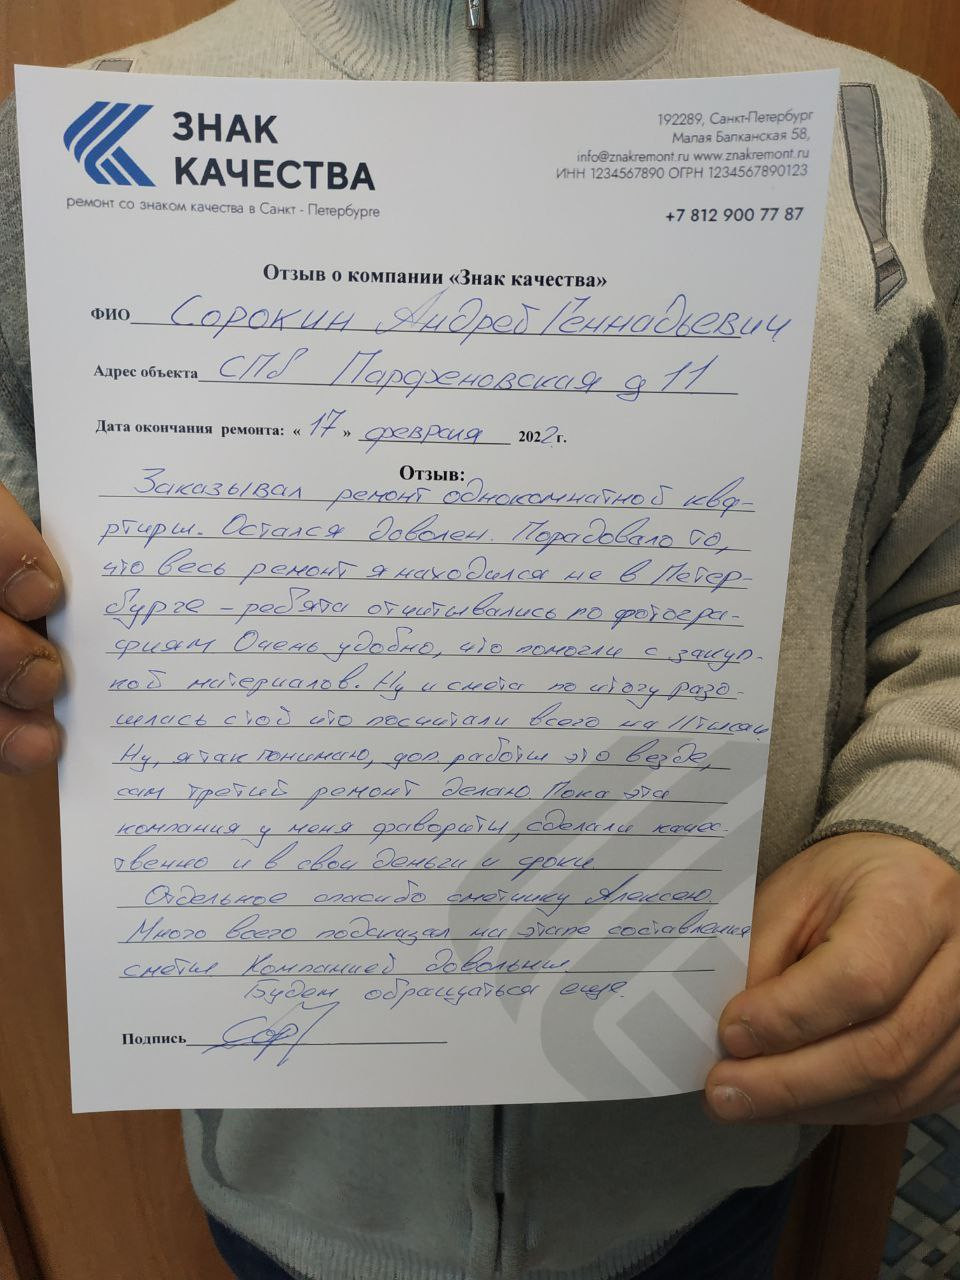 ЗНАК
КАЧЕСТВА
ремонт со знаком качества в Санкт - Петербурге
192289, Санкт-Петербург
Малая Балканская 58,
info@znakremont.ru www.znakremont.ru
ИНН 1234567890 ОГРН 1234567890123
+7 812 900 77 87
Отзыв о компании «Знак качества»
ФИО Сорокин Андрей Геннадьевич
Адрес объекта СПб Парфеновская д 11
Дата окончания ремонта: « 17 » февраля 2022 г.
Отзыв:
Заказывал ремонт однокомнатной ква-
ртиры. Остался доволен. Порадовало то,
что весь ремонт я находился не в Петер-
бурге - ребята отчитывались по фотогра-
фиям Очень удобно, что помогли с закуп-
кой материалов. Ну и смета по итогу разо-
шлась с той что посчитали всего на 11 тысяч.
Ну, я так понимаю, доп. работы это везде,
сам третий ремонт делаю. Пока эта
компания у меня фавориты, сделали качес-
твенно и в свои деньги и сроки.
Отдельное спасибо сметчику Алексею.
Много всего подсказал на этапе составления
сметы Компанией довольны.
Будем обращаться еще.
Подпись Сор